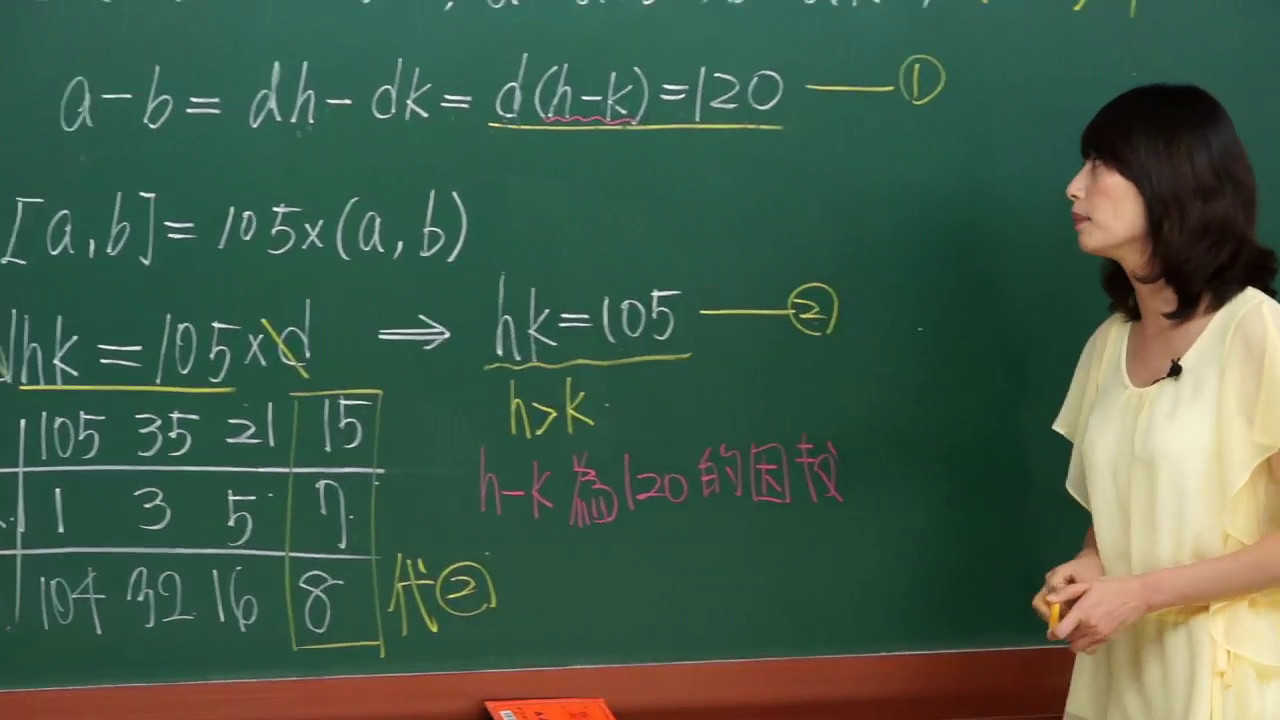 a-b= dh-dk= d(h-k)=120 —— ①
[a,b]= 105×(a,b)
dhk = 105×d ⟹ hk=105 —— ②
h>k
105 35 21 15
h-k 為120的因数
1 3 5 7
104 32 16 8 代②